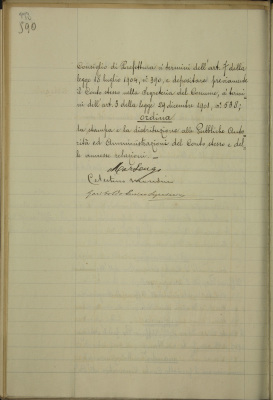 590
Consiglio di Prefettura ai termini dell'art. 7 della
legge 18 luglio 1904, n. 390, e depositare previamente
il Conto stesso nella Segreteria del Comune, ai termi-
ni dell'art. 3 della legge 29 dicembre 1901, n. 538;
ordina
la stampa e la distribuzione alle Pubbliche Auto-
rità ed Amministrazioni del Conto stesso e del-
le annesse relazioni. —